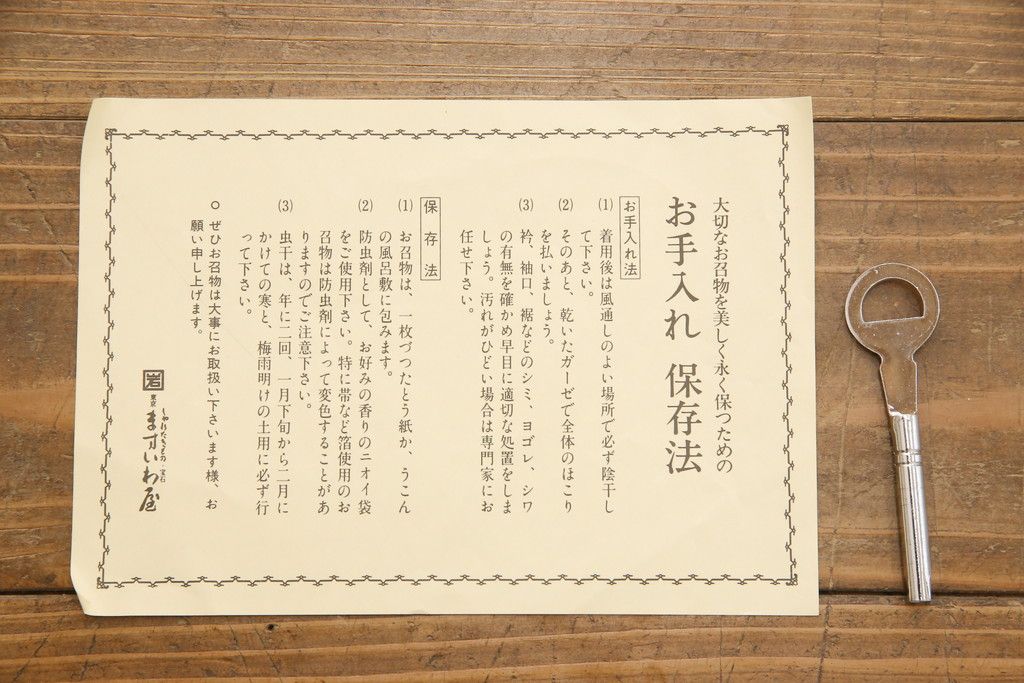 大切なお召物を美しく永く保つための
お手入れ 保存法
お手入れ法
(1) 着用後は風通しのよい場所で必ず陰干し
て下さい。
(2) そのあと、乾いたガーゼで全体のほこり
を払いましょう。
(3) 衿、袖口、裾などのシミ、ヨゴレ、シワ
の有無を確かめ早目に適切な処置をしま
しょう。汚れがひどい場合は専門家にお
任せ下さい。
保存法
(1) お召物は、一枚づつたとう紙か、うこん
の風呂敷に包みます。
(2) 防虫剤として、お好みの香りのニオイ袋
をご使用下さい。特に帯など箔使用のお
召物は防虫剤によって変色することがあ
りますのでご注意下さい。
(3) 虫干は、年に二回、一月下旬から二月に
かけての寒と、梅雨明けの土用に必ず行
って下さい。
○ ぜひお召物は大事にお取扱い下さいます様、お
願い申し上げます。
岩
東京
しゃれたきもの・宝石
ますいわ屋